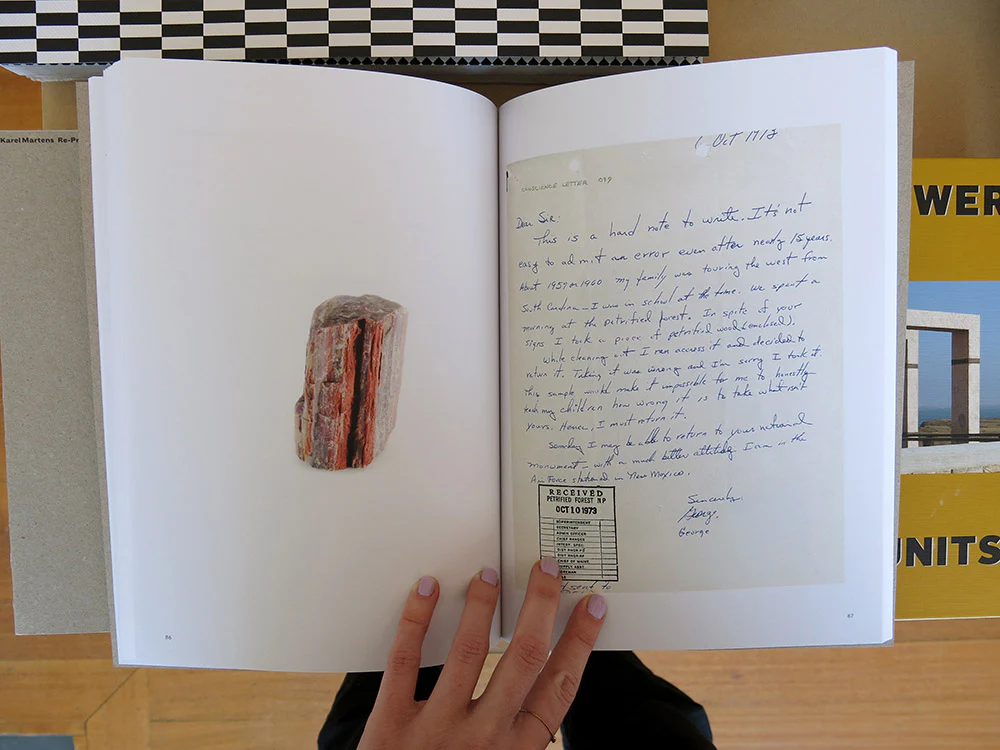 Karel Martens Re-Pr
WER
UNITS
86
Oct 1973
CONSCIENCE LETTER 079
Dear Sir:
This is a hard note to write. It's not
easy to admit an error even after nearly 15 years.
About 1959 or 1960 my family was touring the west from
South Carolina - I was in school at the time. We spent a
morning at the petrified forest. In spite of your
signs I took a piece of petrified wood (enclosed).
While cleaning out I ran across it and decided to
return it. Taking it was wrong and I'm sorry I took it.
This sample would make it impossible for me to honestly
teach my children how wrong it is to take what isn't
yours. Hence, I must return it.
Someday I may be able to return to your national
monument - with a much better attitude. I am in the
Air Force stationed in New Mexico.
Sincerely,
George
George
RECEIVED
PETRIFIED FOREST NP
OCT 10 1973
SUPERINTENDENT
SECRETARY
ADMIN OFFICER
CHIEF RANGER
INTERP. SPEC.
DIST RNGR-PF
DIST RNGR-RF
CHIEF OF MAINT.
SUPPLY ASST
sent to
87